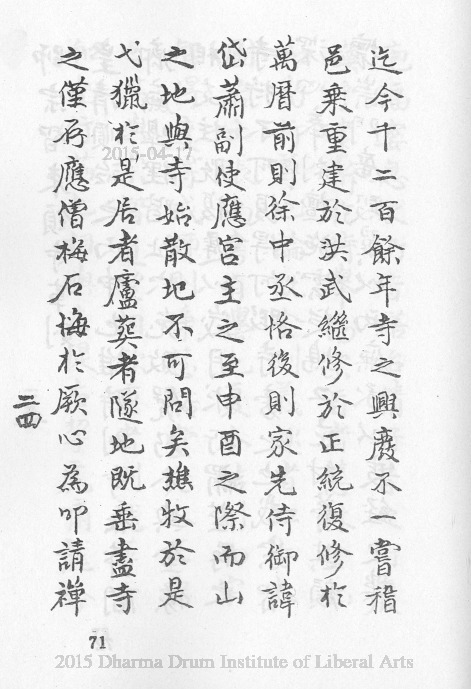 迄今千二百餘年寺之興廢不一嘗稽
邑乗重建於洪武繼修於正統復修於
萬曆前則徐中丞恪後則家先侍御諱
岱蕭副使應宮主之至申酉之際而山
之地與寺始散地不可問矣樵牧於是
弋獵於是居者廬葬者隧地既垂盡寺
之僅存應僧梅石悔於厥心為叩請禪
二四
71
2015-04-17
2015 Dharma Drum Institute of Liberal Arts